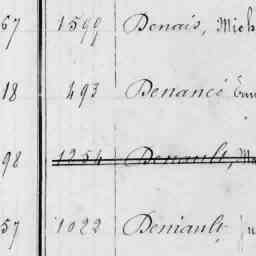 67 1599 Denais, Mich
18 493 Denancé
98 1254 Denault, Ma
57 1022 Deniault, Ju